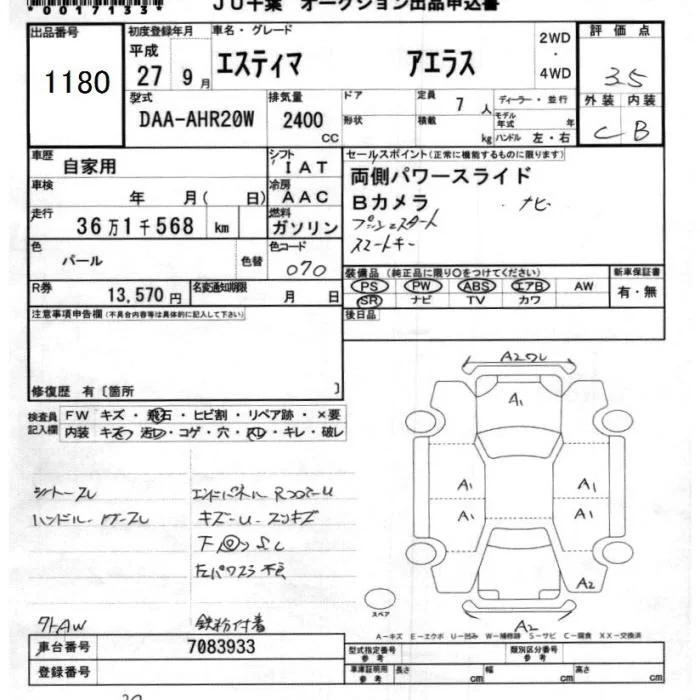 0017133
JU千葉 オークション出品申込書
出品番号
1180
初度登録年月
平成 27 9月
車名・グレード
エスティマ アエラス
2WD・4WD
評価点
3.5
外装 内装
C B
型式
DAA-AHR20W
排気量
2400 CC
ドア
形状
定員 7人
積載 kg
ディーラー・並行
モデル年式 年
ハンドル 左・右
車歴 自家用
シフト IAT
車検 年 月( 日)
冷房 AAC
走行 36万1千568 km
燃料 ガソリン
色 パール 色替
色コード 070
R券 13,570円
名変通知期限 月 日
セールスポイント(正常に機能するものに限ります)
両側パワースライド
Bカメラ ナビ
プッシュスタート
スマートキー
装備品(純正品に限り○をつけてください)
新車保証書
PS PW ABS エアB AW
SR ナビ TV カワ
有・無
後日品
注意事項申告欄(不具合内容等は具体的に記入して下さい)
修復歴 有〔箇所 〕
検査員記入欄
FW キズ・飛石・ヒビ割・リペア跡・×要
内装 キズ・汚レ・コゲ・穴・スレ・キレ・破レ
シートスレ
ハンドル
エンドパネル
キズ
下回り
左パワスラ不良
外AW 鉄粉付着
A2ワレ
A1
A1 A1
A1 A1
A2
A2
スペア
A-キズ E-エクボ U-凹み W-補修跡 S-サビ C-腐食 XX-交換済
車台番号 7083933
登録番号
型式指定番号 参考
類別区分番号 参考
車庫証明用 参考 長さ cm 幅 cm 高さ cm